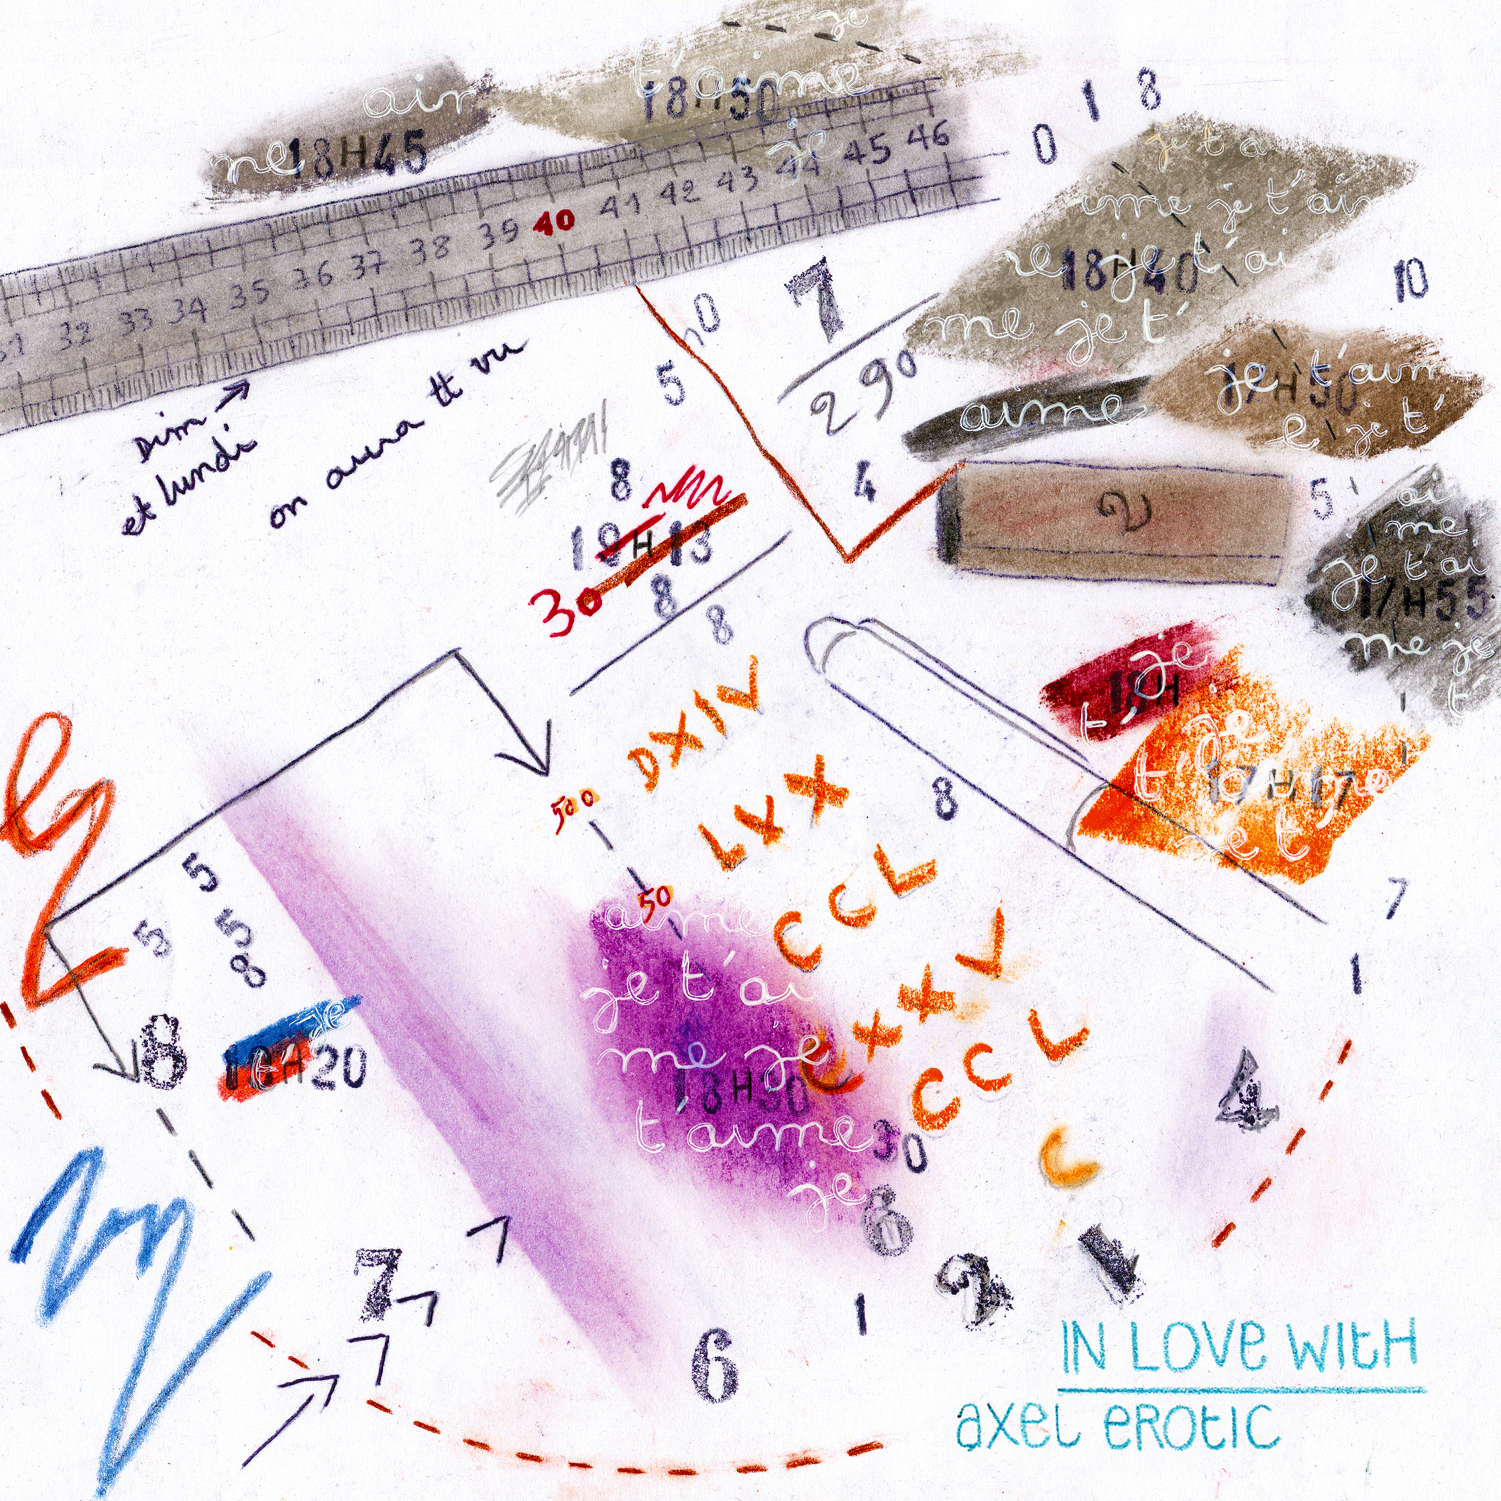 je
t'aime
18H50
aim
ne 18H45
je
32 33 34 35 36 37 38 39 40 41 42 43 44 45 46
0 1 8
je t'a
ime je t'aim
re je t'ai
18H40
me je t'
10
aime
je t'aim
17H50
e je t'
Dim
et lundi
on aura tt vu
0
5
7
290
4
2
5
ai
me
je t'ai
17H55
me je
t
8
19H13
30
8
8
je
18H
t'
je
t'aime
17H17
je t'
DXIV
LVX
CCL
CXXV
CCL
C
8
7
1
500
50
aime
je t'ai
me je
18H30
t'aime
je
30
8
5
5
5
8
8
je
t'
18H20
4
7
6
1
2
1
IN LOVE WITH
axel EROTIC